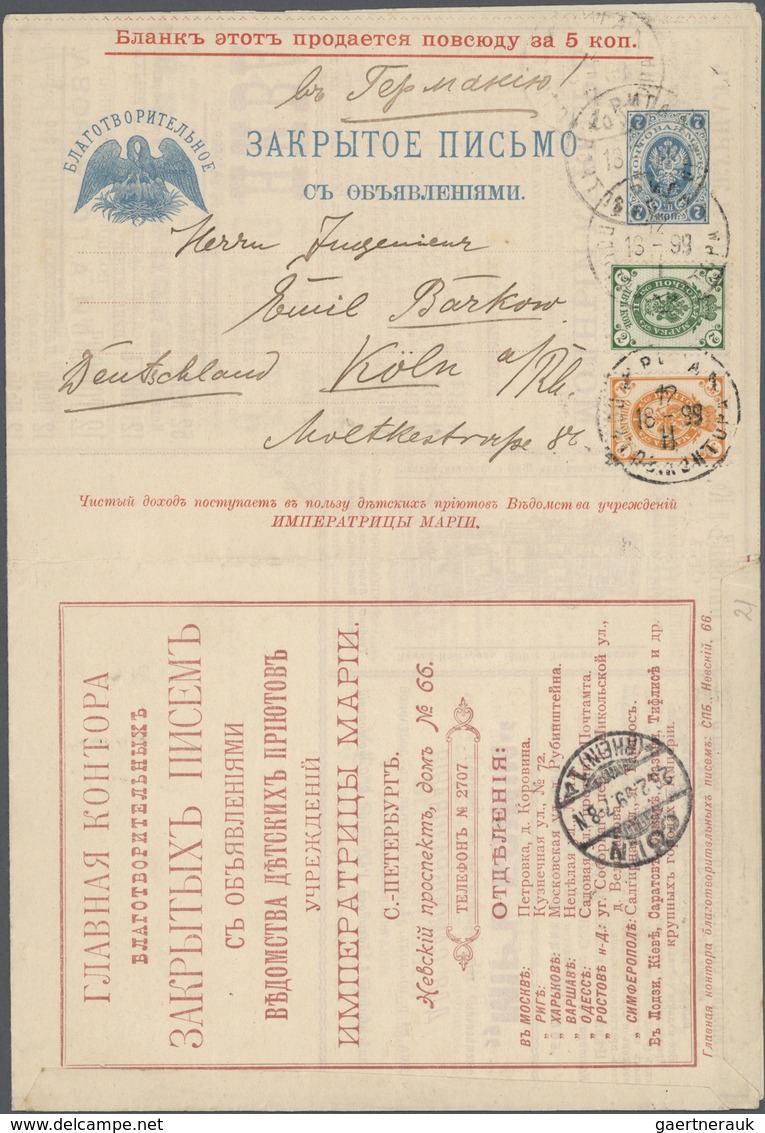 Бланкъ этотъ продается повсюду за 5 коп.
въ Германію
БЛАГОТВОРИТЕЛЬНОЕ
ЗАКРЫТОЕ ПИСЬМО
СЪ ОБЪЯВЛЕНІЯМИ.
7 7
7 7
Herrn Ingenieur
Emil Barkow
Deutschland Köln a/Rh.
Moltkestraße 82
18 – 99
2 2
2 2
18 – 99
Чистый доходъ поступаетъ въ пользу дѣтскихъ пріютовъ Вѣдомства учрежденій
ИМПЕРАТРИЦЫ МАРІИ.
21
ГЛАВНАЯ КОНТОРА
БЛАГОТВОРИТЕЛЬНЫХЪ
ЗАКРЫТЫХЪ ПИСЕМЪ
СЪ ОБЪЯВЛЕНІЯМИ
ВѢДОМСТВА ДѢТСКИХЪ ПРІЮТОВЪ
УЧРЕЖДЕНІЙ
ИМПЕРАТРИЦЫ МАРІИ.
С.-ПЕТЕРБУРГЪ.
Невскій проспектъ, домъ № 66.
ТЕЛЕФОНЪ № 2707.
ОТДѢЛЕНІЯ:
ВЪ МОСКВѢ: Петровка, д. Коровина.
„ РИГѢ: Кузнечная ул., № 72.
„ ХАРЬКОВѢ: Московская у Рубинштейна.
„ ВАРШАВѢ: Нецѣлая
„ ОДЕССѢ: Садовая Почтамта.
„ РОСТОВѢ н-Д.: уг. Собор Никольской ул.,
д. Ве
„ СИМФЕРОПОЛѢ: Салгирная
Въ Лодзи, Кіевѣ, Саратовѣ Тифлисѣ и др.
крупныхъ
Главная контора благотворительныхъ писемъ: СПБ. Невскій, 66.
CÖLN
(RHEIN) 1
7-8N